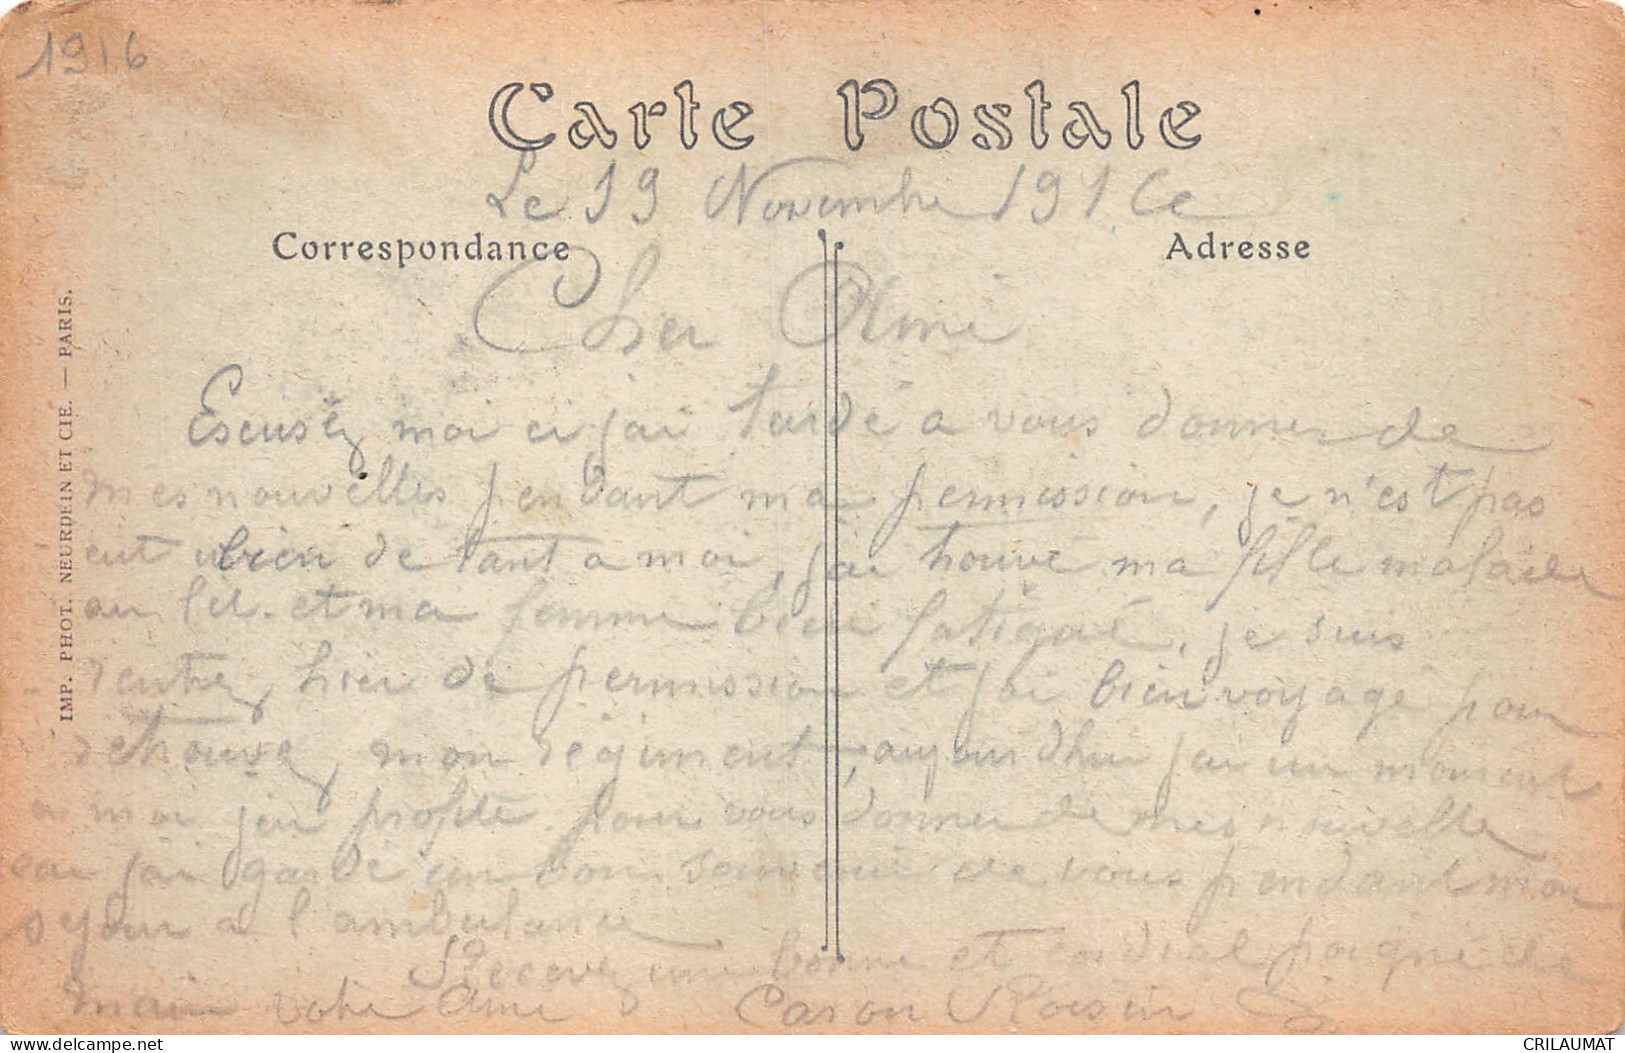 1916
Carte Postale
Le 19 Novembre 191
Correspondance
Adresse
Cher Ami
Escusez moi ci jai tardé a vous donner de
mes nouvelles pendant ma permission, je n'est pas
eut bien de tant a moi, jai trouvé ma fille malade
au lit. et ma femme bien fatigué, je suis
rentrez hier de permission et jai bien voyagé pour
retrouvez mon régiment, aujourdhui jai un moment
a moi jen profite pour vous donner de mes nouvelle
car jai gardé un bon souvenir de vous pendant mon
sejour a l'ambulance
Recevez une bonne et cordial poigné de
main votre ami Caron
IMP. PHOT. NEURDEIN ET CIE. — PARIS.
delcampe.net
CRILAUMAT